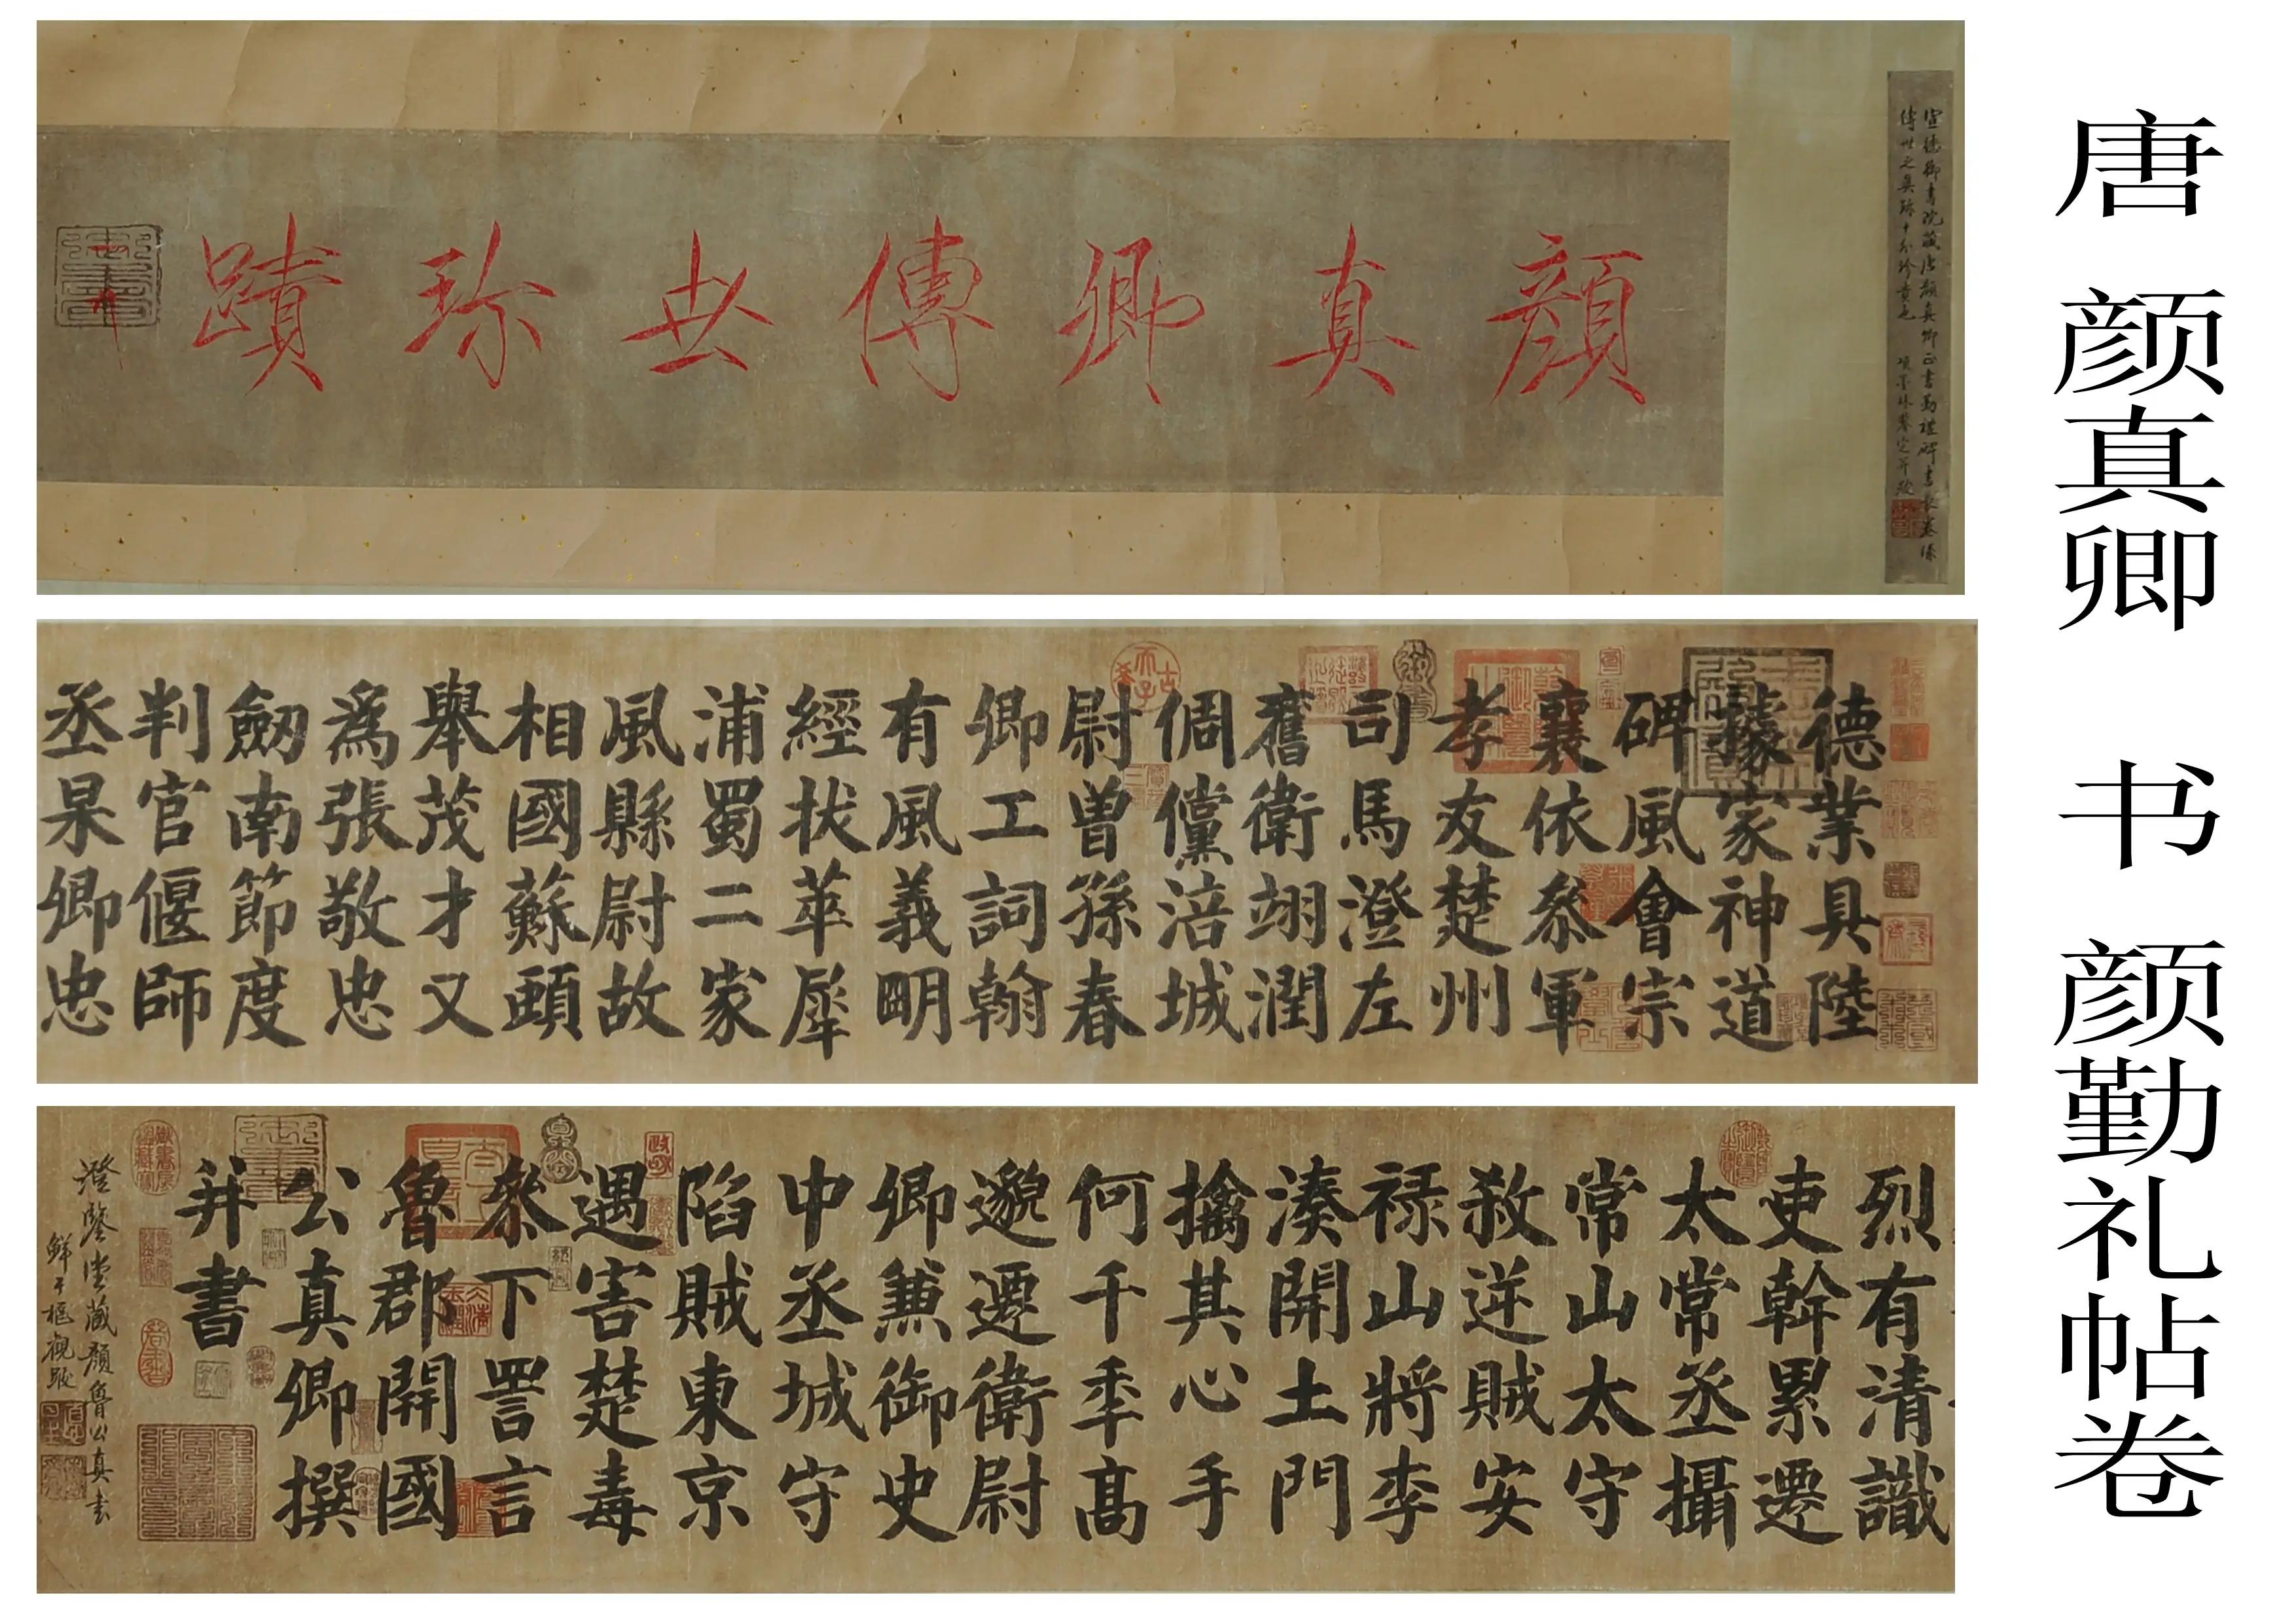 唐 颜真卿 书 颜勤礼帖卷
顔真卿傳世珎蹟
德業具陸
據家神道
碑風會宗
襄依叅軍
孝友楚州
司馬澄左
舊衛翊潤
倜儻涪城
尉曾孫春
卿工詞翰
有風義明
經状華犀
浦蜀二家
風縣尉故
相國蘇頲
舉茂才又
爲張敬忠
劒南節度
判官偃師
丞杲卿忠
烈有清識
吏幹累遷
太常丞攝
常山太守
殺逆賊安
禄山將李
湊開土門
擒其心手
何千秊髙
邈遷衛尉
卿兼御史
中丞城守
陷賊東京
遇害楚毒
叅下詈言
魯郡開國
公真卿撰
并書
澄鑒堂藏顏魯公真書
鮮于樞觀題